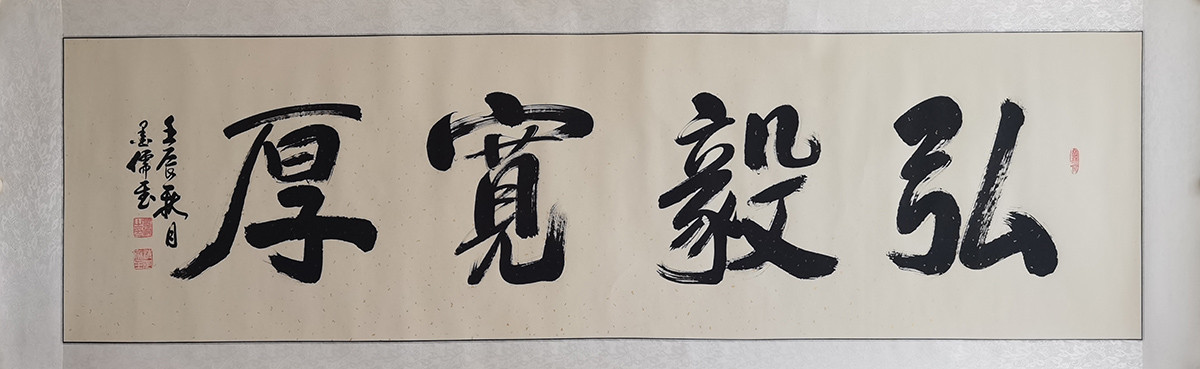 弘毅寬厚
壬辰秋月
墨儒書